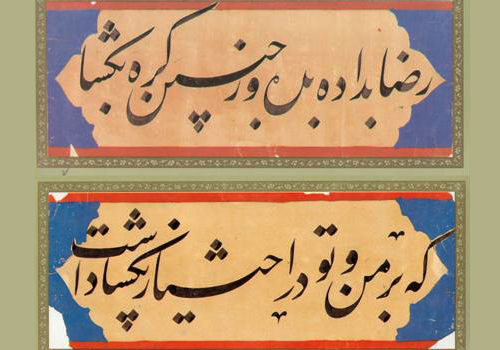 رضا بداده بده وز جبین گره بگشا
که بر من و تو در اختیار نگشاداست